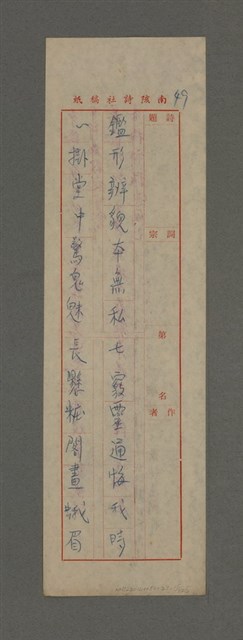 南陔詩社稿紙
49
詩題
詞宗
第 名
作者
鑑形辨貌本無私七竅靈通悔我時
一掛堂中驚鬼魅長懸粧閣畫蛾眉